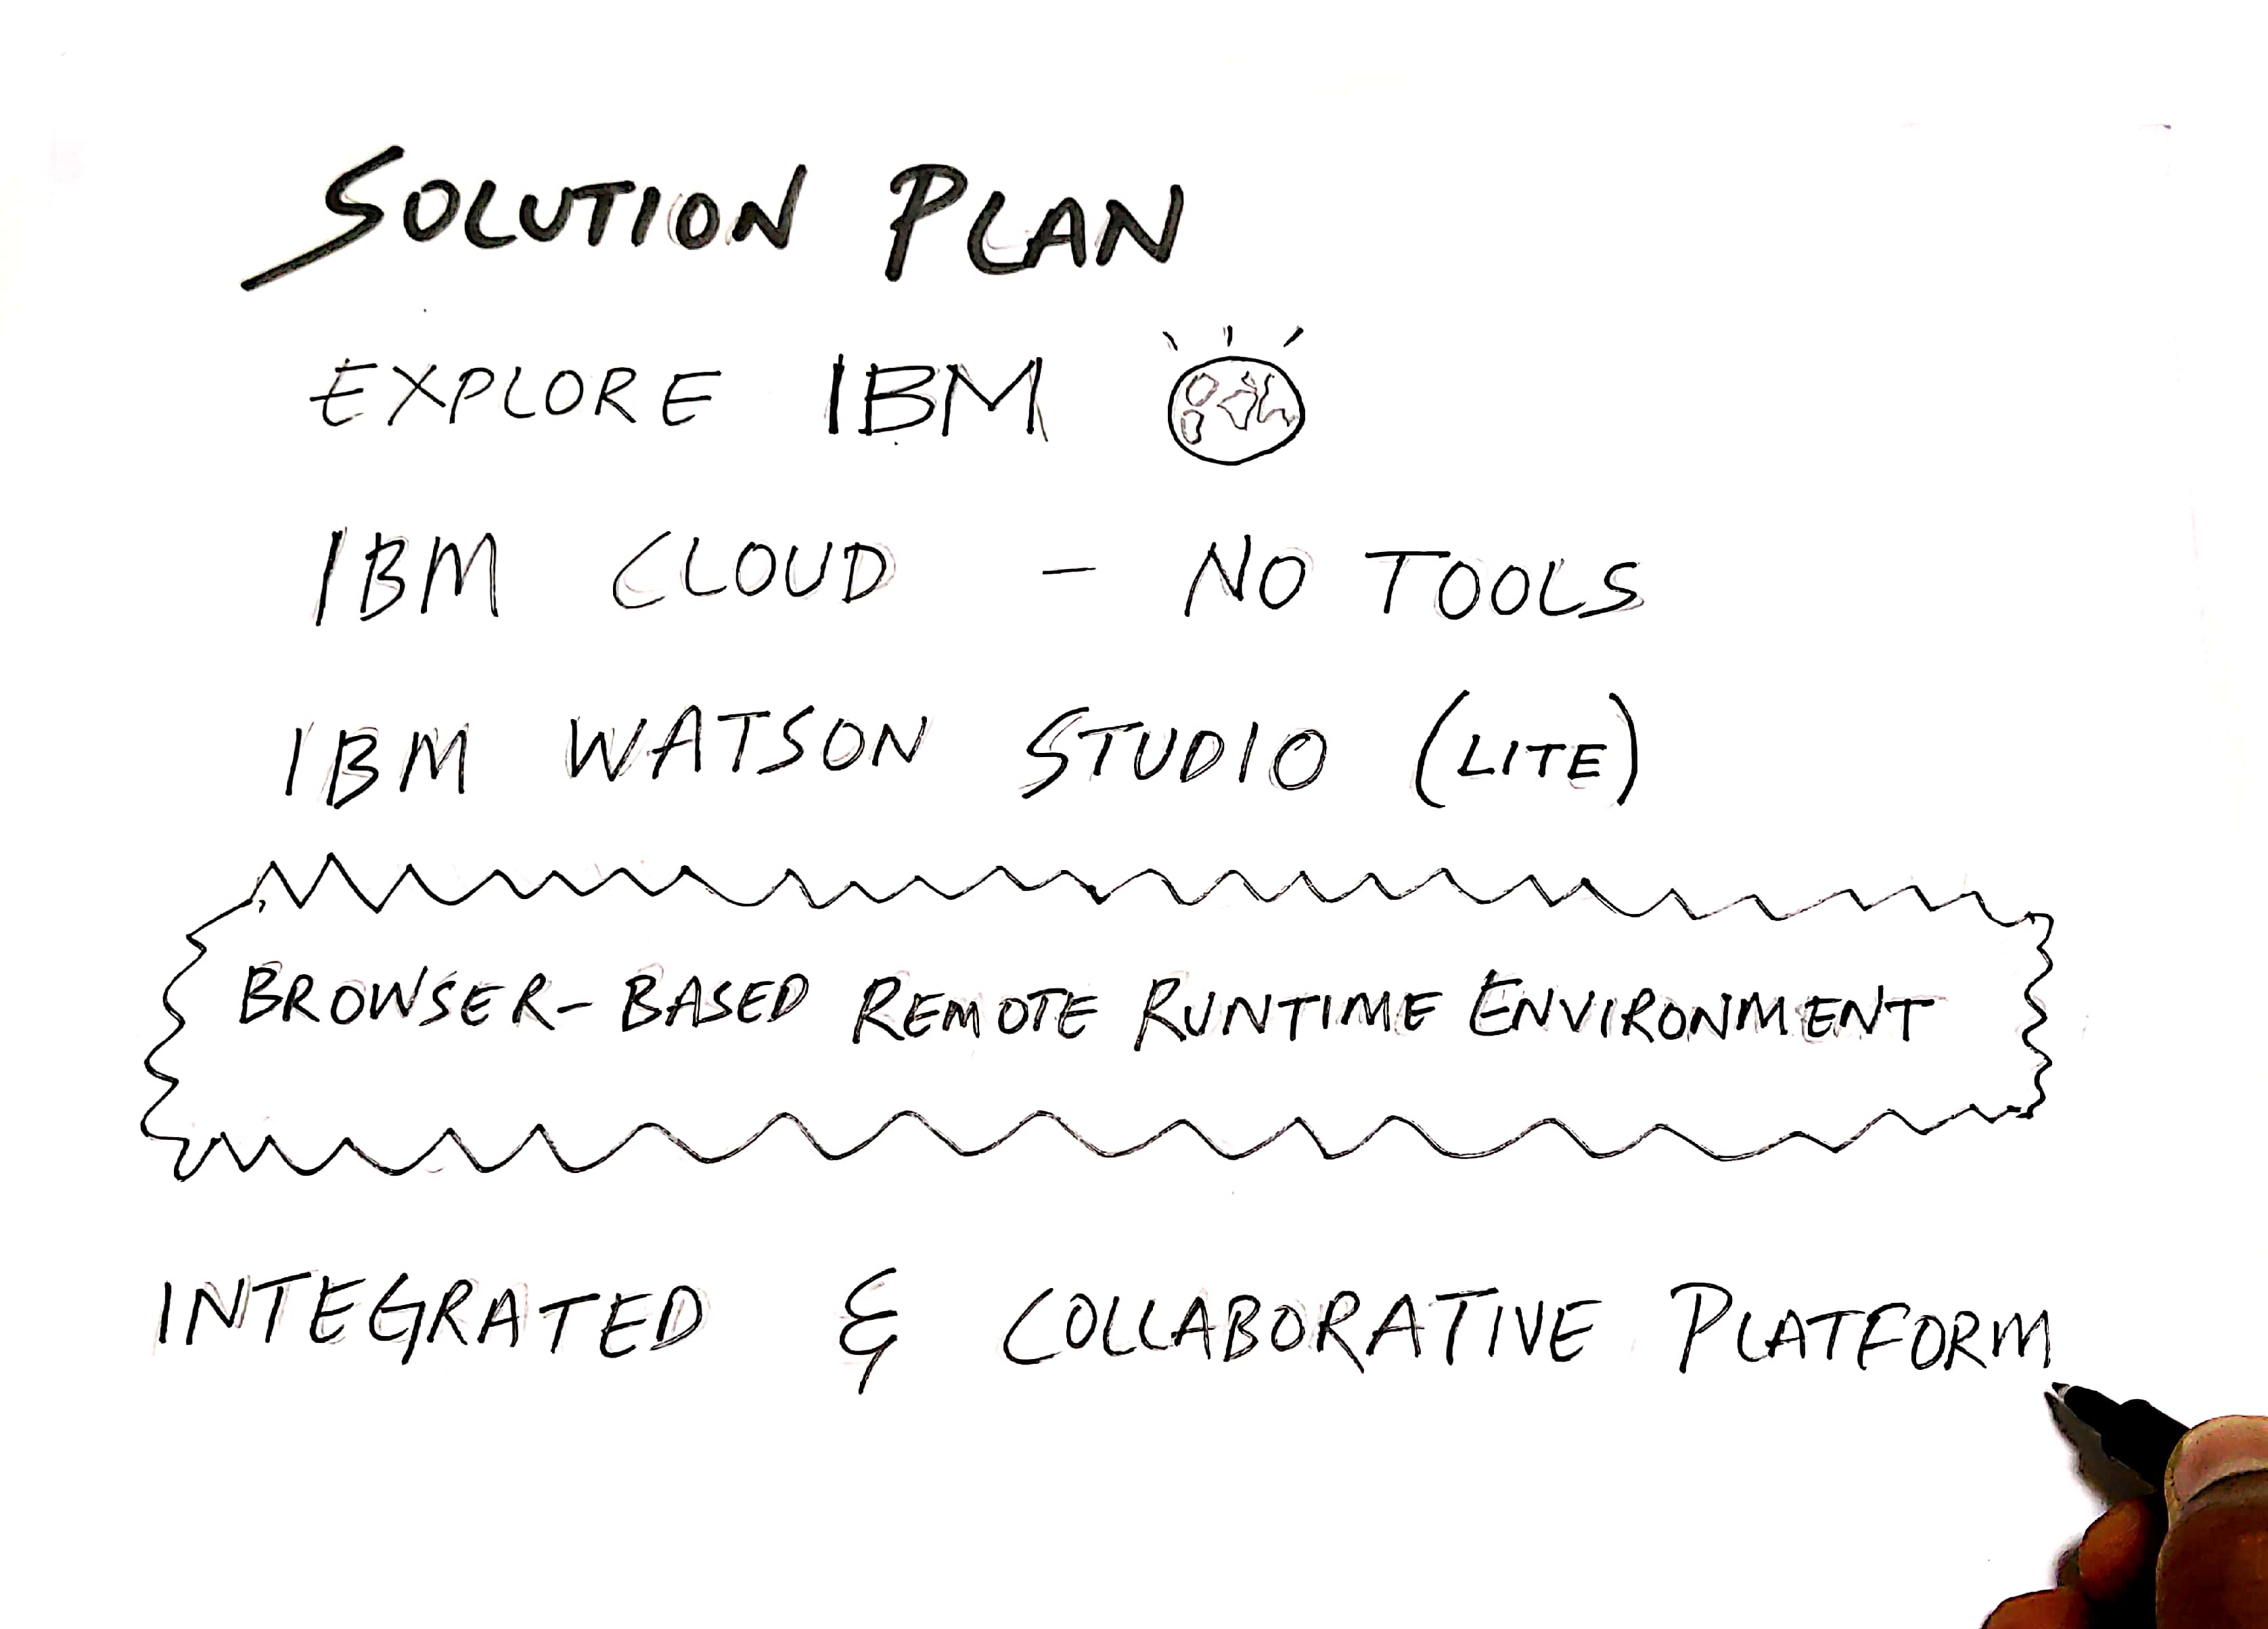 SOLUTION PLAN
EXPLORE IBM
IBM CLOUD - NO TOOLS
IBM WATSON STUDIO (LITE)
BROWSER-BASED REMOTE RUNTIME ENVIRONMENT
INTEGRATED & COLLABORATIVE PLATFORM